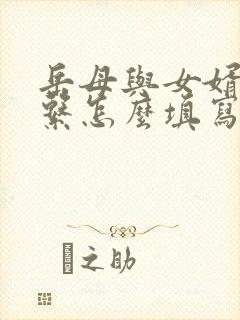 岳母與女婿
繫怎麼填寫
之助